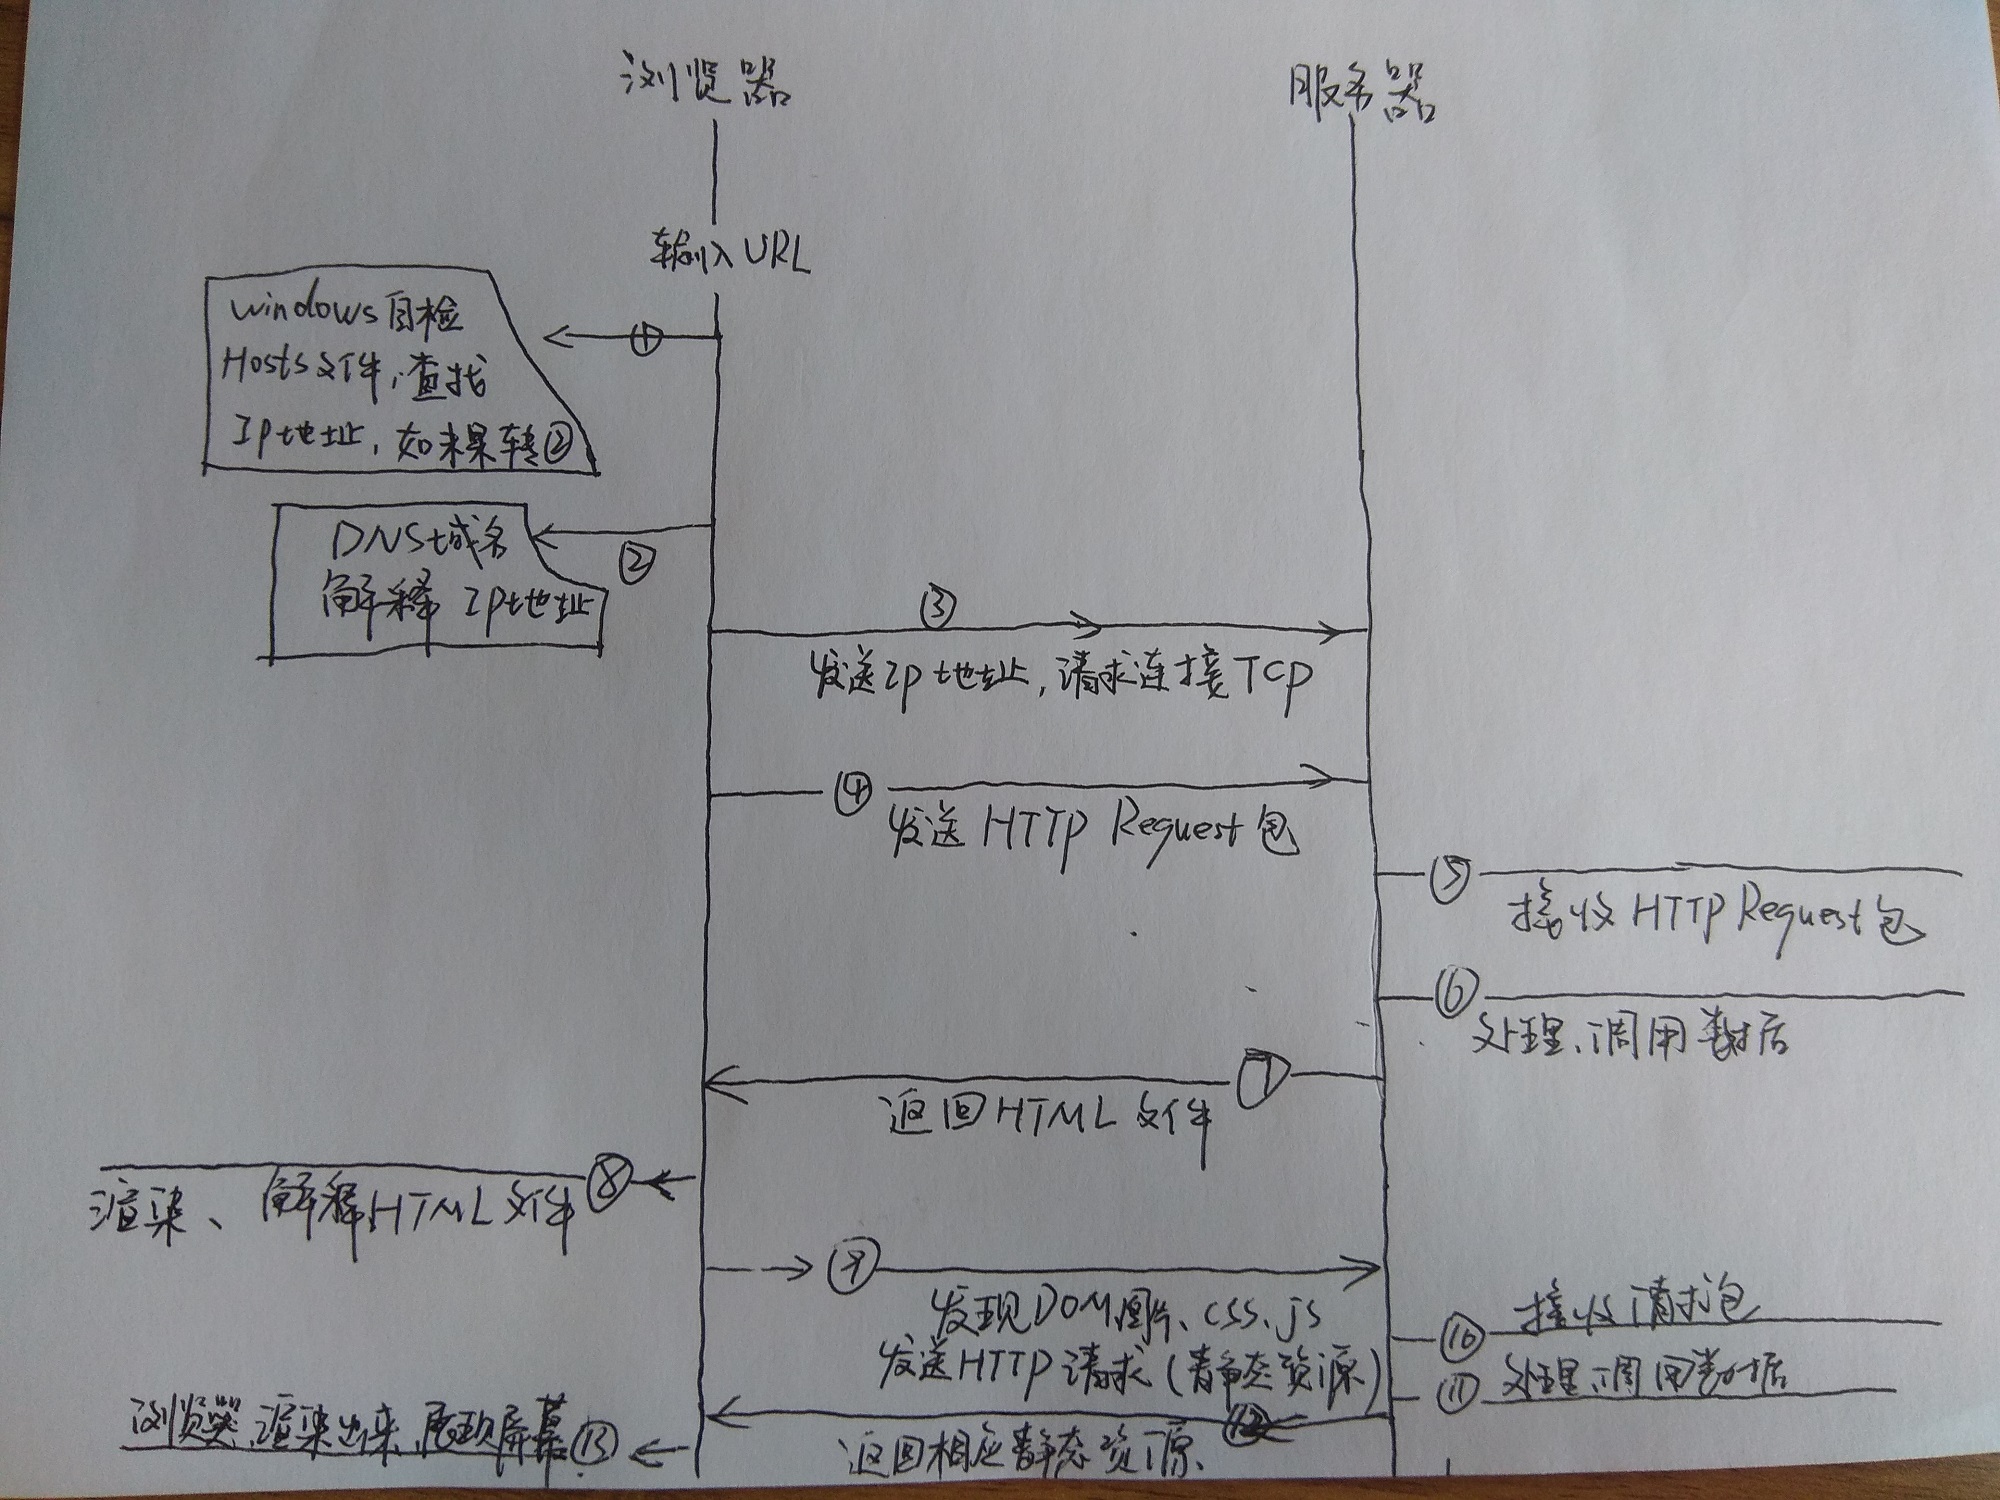 浏览器
服务器
输入URL
windows自检
Hosts文件,查找
Ip地址,如未果转②
①
DNS域名
解释 Ip地址
②
③
发送Ip地址,请求连接TCP
④
发送 HTTP Request包
⑤
接收 HTTP Request包
⑥
处理、调用数据
⑦
返回HTML文件
⑧
渲染、解释HTML文件
⑨
发现DOM图片、css、js
发送HTTP请求(静态资源)
⑩ 接收请求包
⑪ 处理、调用数据
⑫
返回相应静态资源.
浏览器渲染出来,展现屏幕⑬